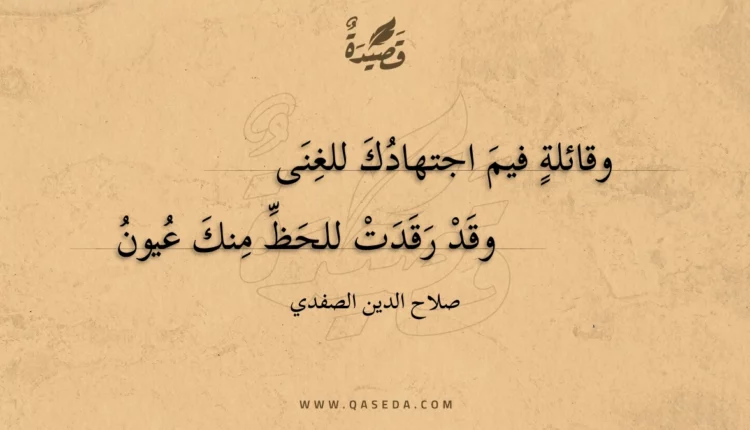 قَصِيْدَةٌ
وقائلةٍ فيمَ اجتهادُكَ للغِنَى
وقَدْ رَقَدَتْ للحَظِّ مِنكَ عُيونُ
صلاح الدين الصفدي
WWW.QASEDA.COM